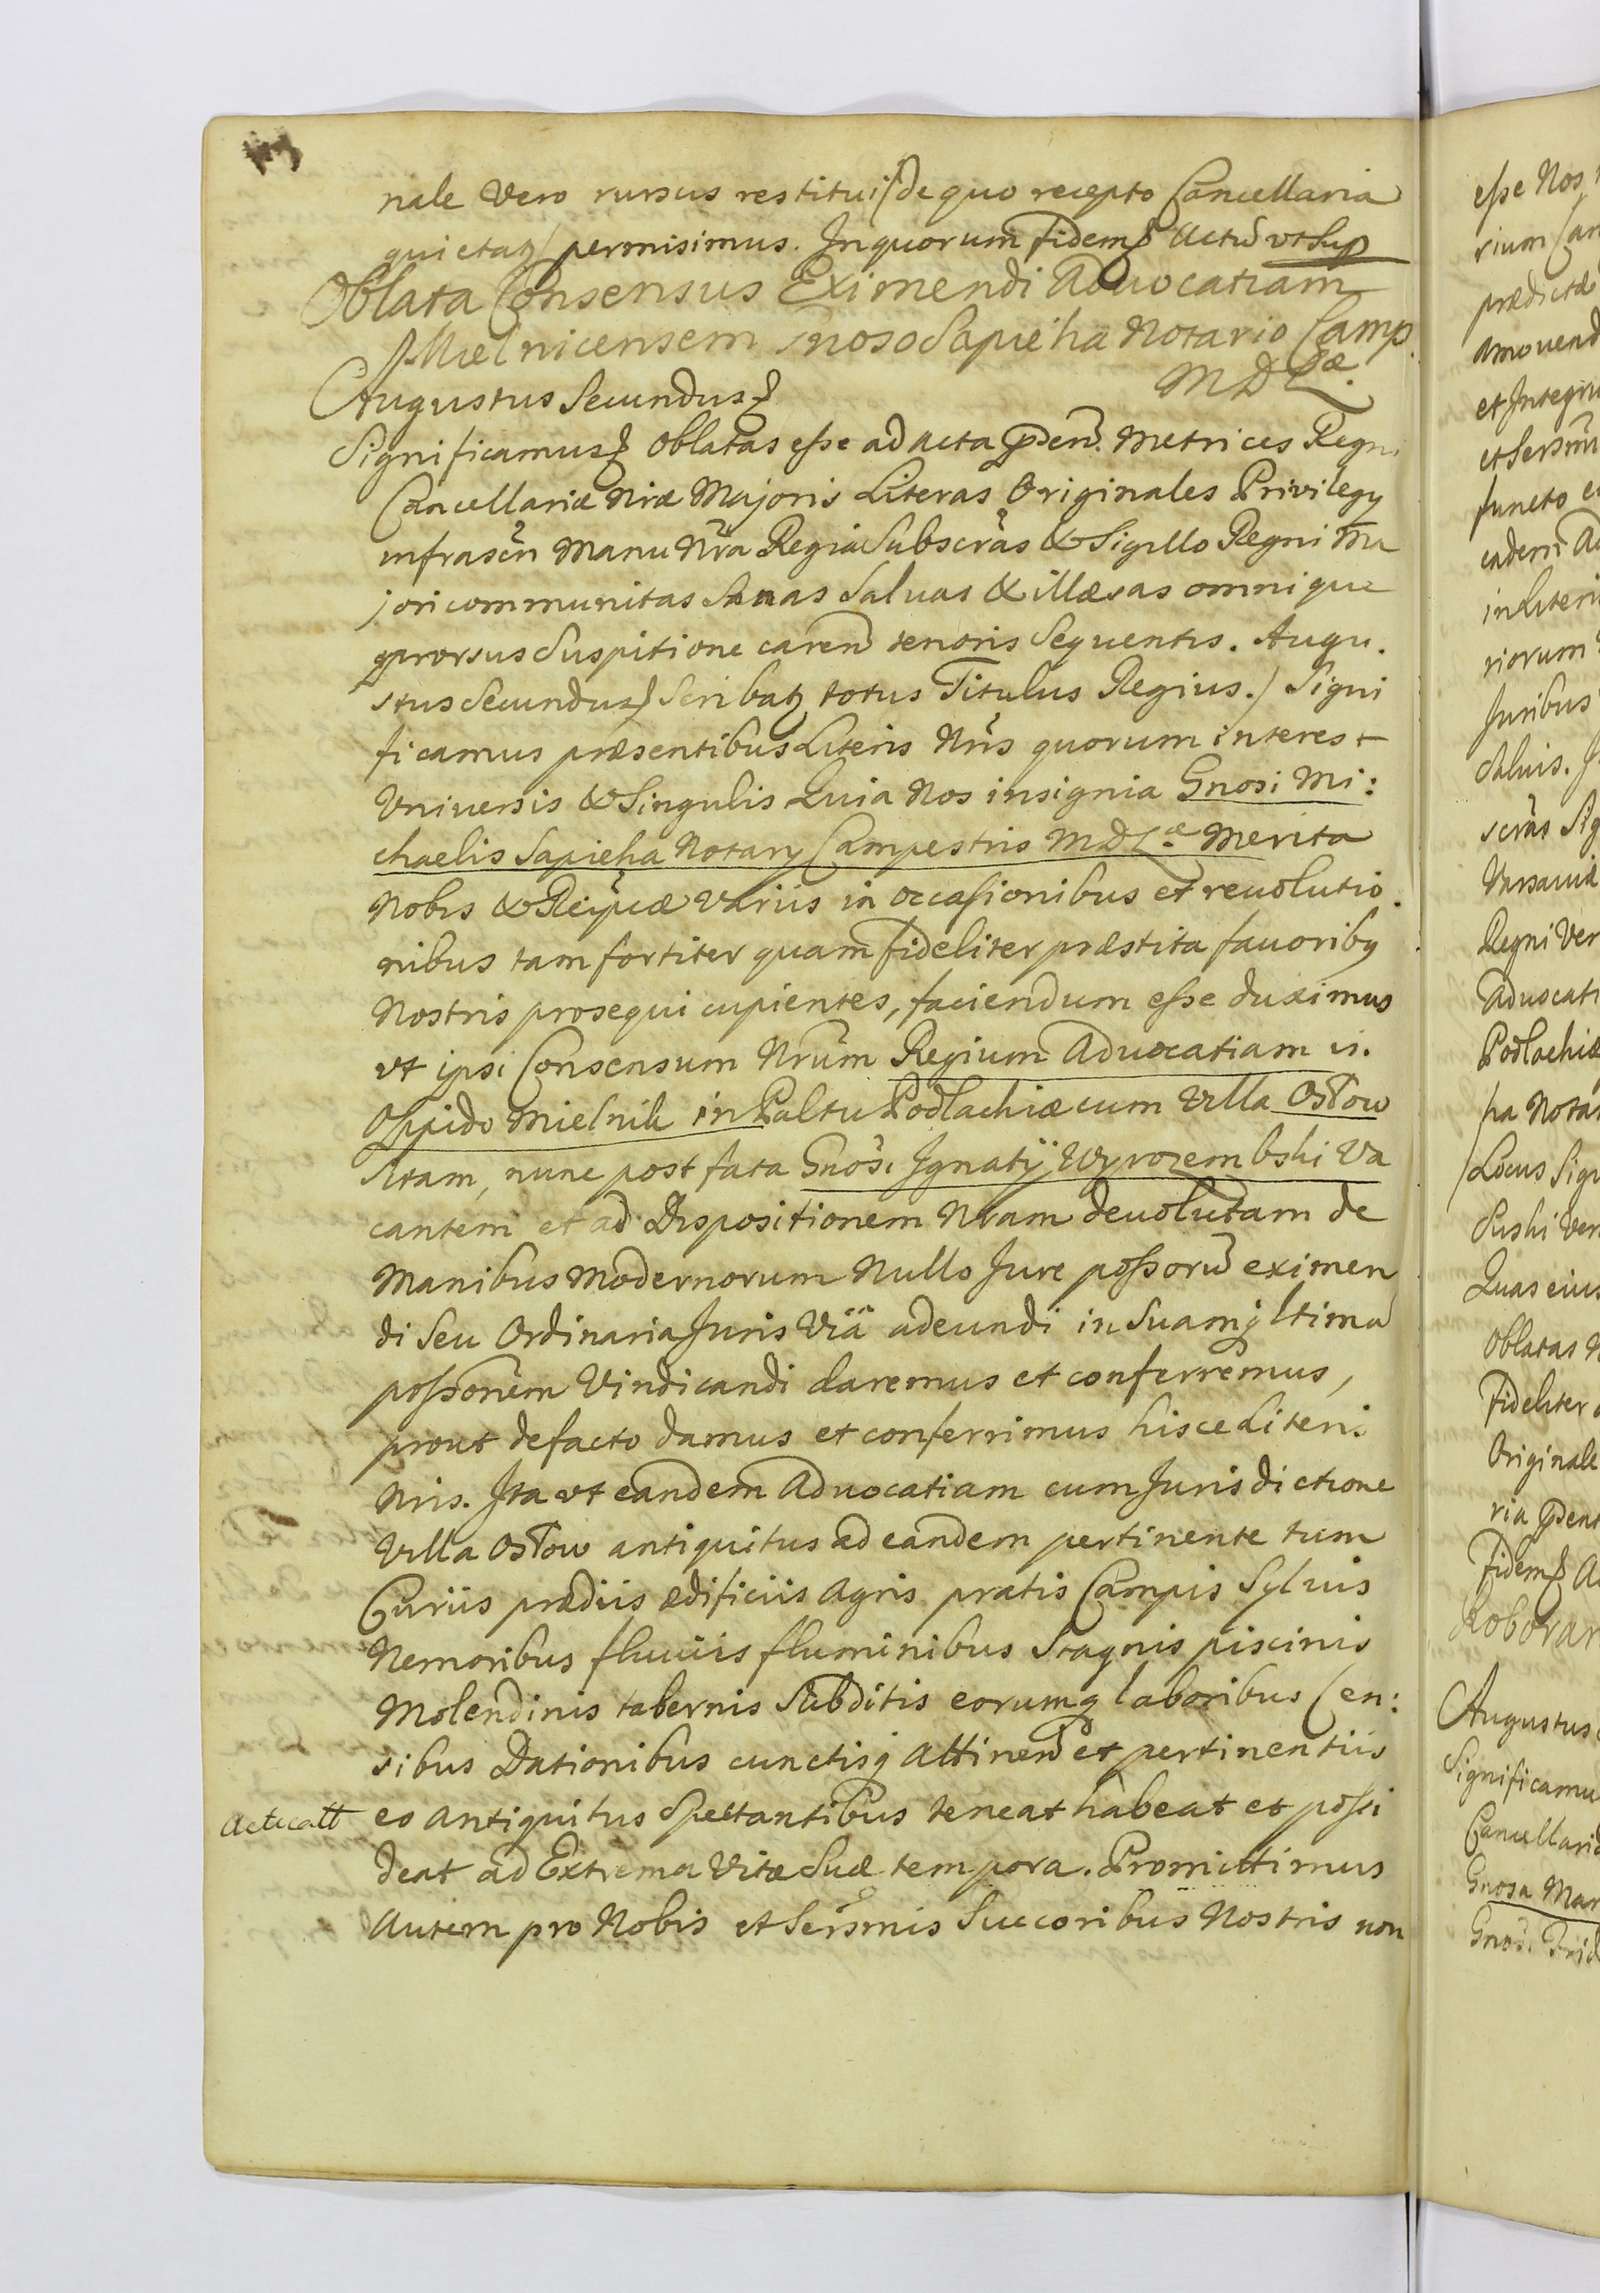 nale Vero rursus restitui (de quo recepto Cancellaria
quietat) permisimus. In quorum fidem & Actũ vt Sup
Oblata Consensus Eximendi Aduocatiam
Mielnicensem Gnoso Sapieha Notario Camp.
M D Læ.
Augustus Secundus &
Significamus & Oblatas esse ad Acta pñden. Metrices Regni
Cancellariæ Nræ Majoris Literas Originales Privilegy
infrascñ Manu Nrã Regia Subscrãs & Sigillo Regni Ma
jori communitas Sanas Saluas & illæsas omnique
prorsus Suspitione caren tenoris Sequentis. Augu.
stus Secundus & Scribatz totus Titulus Regius.) Signi
ficamus præsentibus Literis Nris quorum interest
Vniuersis & Singulis Quia Nos insignia Gnosi Mi:
chaelis Sapieha Notary Campestris M D Læ Merita
Nobis & Reipcæ Variis in occasionibus et reuolutio.
nibus tam fortiter quam fideliter præstita fauoribq
Nostris prosequi cupientes, faciendum esse duximus
vt ipsi Consensum Nrum Regium Aduocatiam in
Oppido Mielnik in Paltu Podlachiæ cum Villa Osłow
Sitam, nunc post fata Gnosi Ignatÿ Wyrozembski Va
cantem et ad Dispositionem Nram deuolutam de
Manibus Modernorum Nullo Jure possorũ eximen
di Seu Ordinaria Juris Viâ adeundi in Suamq ltima
possonem Vindicandi daremus et conferremus,
prout de facto damus et conferrimus hisce Literis
Nris. Ita vt eandem Aduocatiam cum Jurisdictione
Villa Osłow antiquitus ad eandem pertinente tum
Curiis prædiis ædificiis Agris pratis Campis Syluis
Nemoribus fluuiis fluminibus Stagnis piscinis
Molendinis tabernis Subditis eorumq laboribus Cen:
sibus Dationibus cunctisq Attinen et pertinentiis
Acticatt eo Antiquitus Spectantibus teneat habeat et possi
deat ad Extrema Vitæ Suæ tempora. Promittimus
Autem pro Nobis et Serenis Succoribus Nostris non
esse Nos
rium Can
prædictæ
Amouend
et Integru
et Sersmi
functo
eadem Ad
in Literis
riorum
Juribus
Saluis.
scras Sig
Varsauiæ
Regni Ver
Aduocati
Podlachiæ
ha Notar
(Locus Sigi
Suski Ver
Quas eius
Oblatas
Fideliter
Originale
ria pñden
Fidem & Ac
Roborar
Augustus
Significamu
Cancellariæ
Gnosa Mar
Gnosi Frid